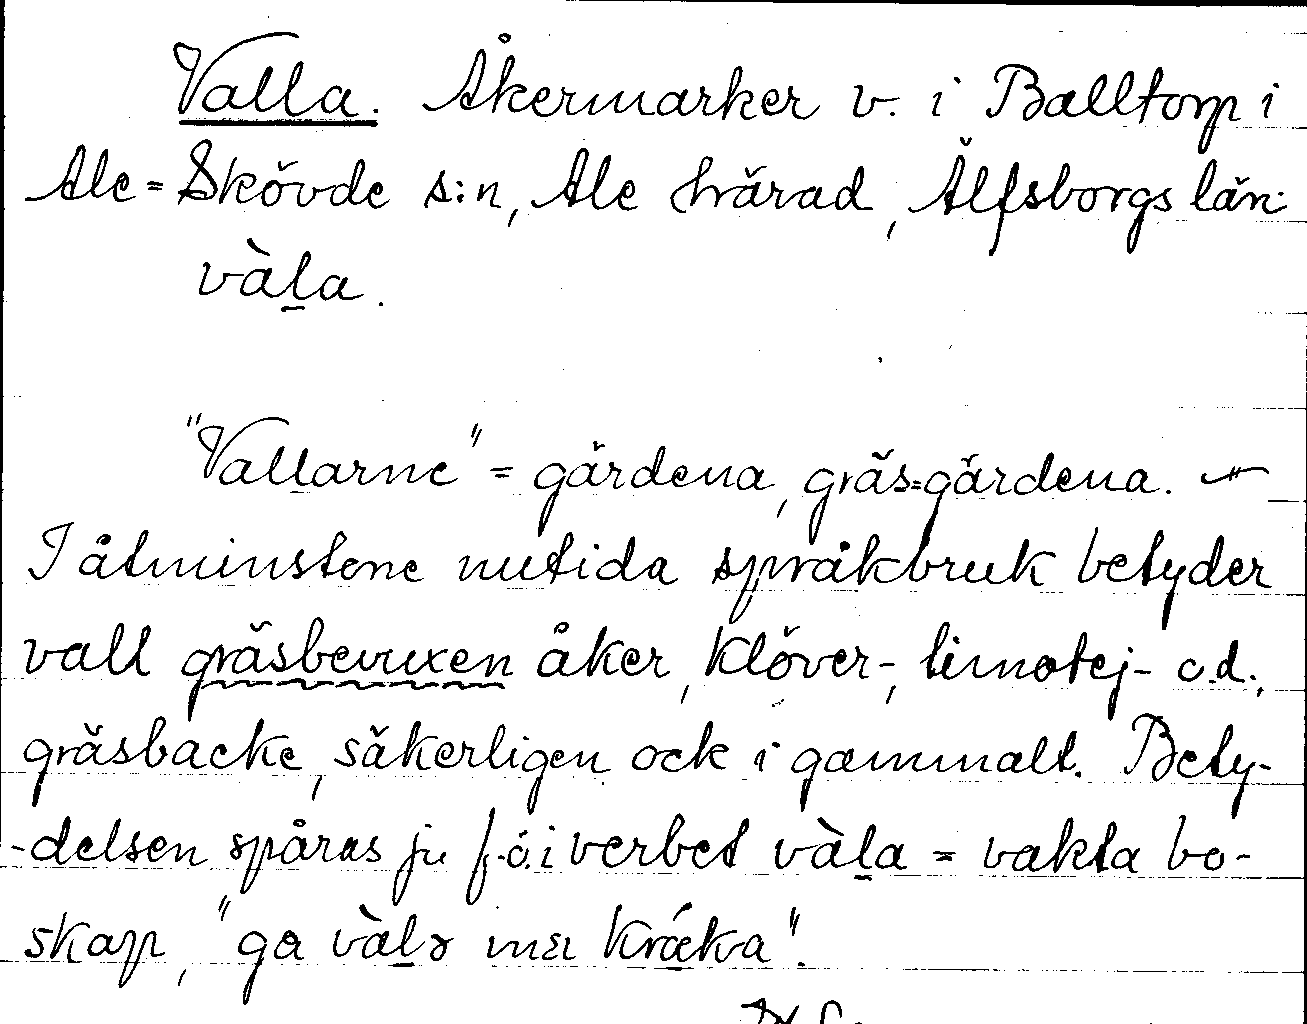 Valla. Åkermarker v. i Balltorp i
Ale=Skövde s:n, Ale härad, Älfsborgs län.
vàḻa.
"Vallarne" = gärdena, gräs=gärdena. —
I åtminstone nutida språkbruk betyder
vall gräsbevuxen åker, klöver-, timotej- o.d.,
gräsbacke, säkerligen ock i gammalt. Bety-
-delsen spåras ju f.ö. i verbet vàḻa = vakta bo-
skap, "ga vàḻə mä kráka".